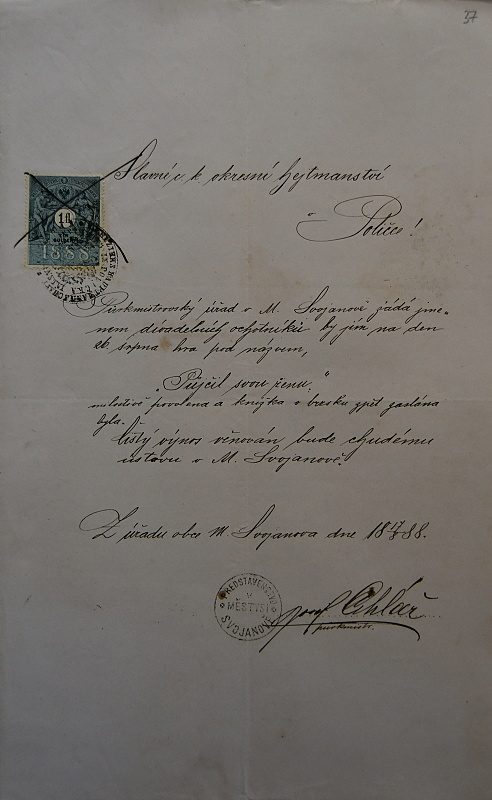 37
Slavné c. k. okresní hejtmanství
v Poličce!
1 fl.
1888
Purkmistrovský úřad v M. Svojanově žádá jme„
nem divadelních ochotníků by jim na den
26. srpna hra pod názvem,
„Půjčil svou ženu."
milostivě povolena a knížka v brzsku zpět zaslána
byla.
Čistý výnos věnován bude chudému
ústavu v M. Svojanově.
Z úřadu obce M. Svojanova dne 18 88.
PŘEDSTAVENSTVO
V
MĚSTYSI
SVOJANOVĚ
Josef Cihlář
purkmistr.